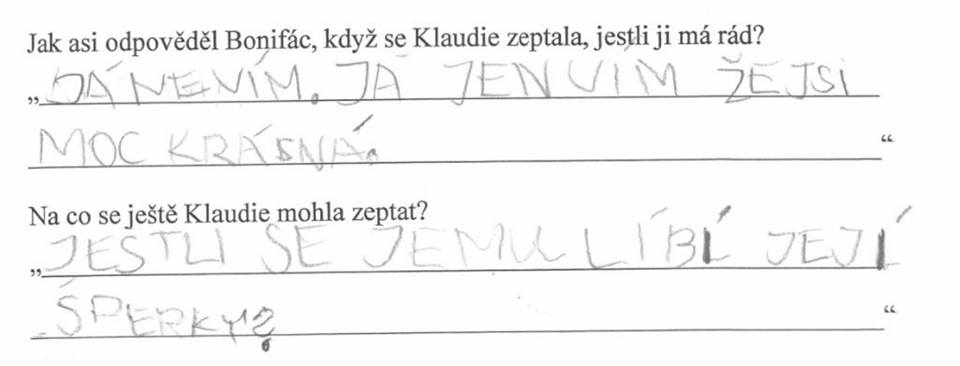 Jak asi odpověděl Bonifác, když se Klaudie zeptala, jestli ji má rád?
„JÁ NEVÍM. JÁ JEN VÍM ŽE JSI
MOC KRÁSNÁ.“
Na co se ještě Klaudie mohla zeptat?
„JESTLI SE JEMU LÍBÍ JEJÍ
ŠPERKY?“